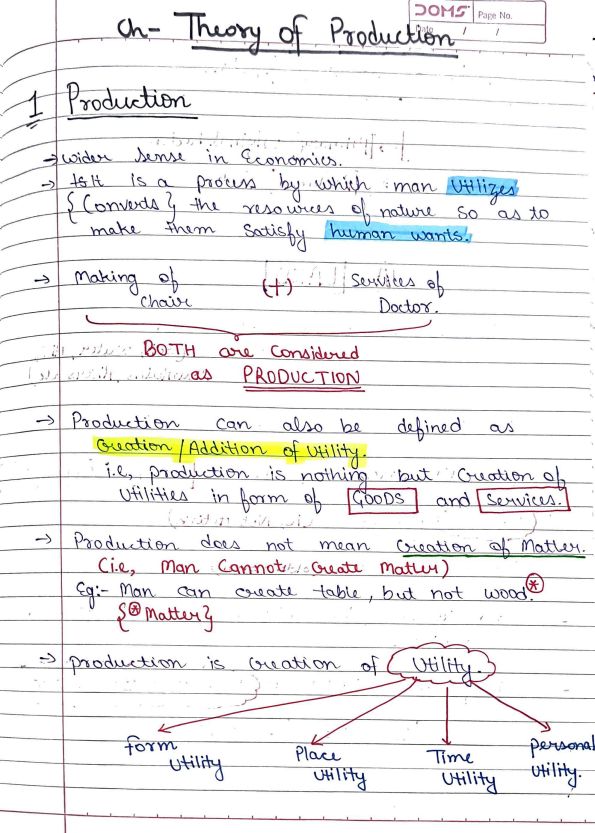 DOMS Page No.
Date / /
Ch- Theory of Production
1 Production
→ wider sense in Economics.
→ It is a process by which man Utilizes
{Converts} the resources of nature so as to
make them satisfy human wants.
→ Making of chair (+) Services of Doctor.
BOTH are considered
as PRODUCTION
→ Production can also be defined as
Creation/Addition of Utility.
i.e, production is nothing but Creation of
Utilities in form of GOODS and Services.
→ Production does not mean Creation of Matter.
(i.e, Man Cannot Create Matter)
Eg:- Man can create table, but not wood.*
{* Matter}
→ production is Creation of Utility.
form Utility Place Utility Time Utility personal Utility.